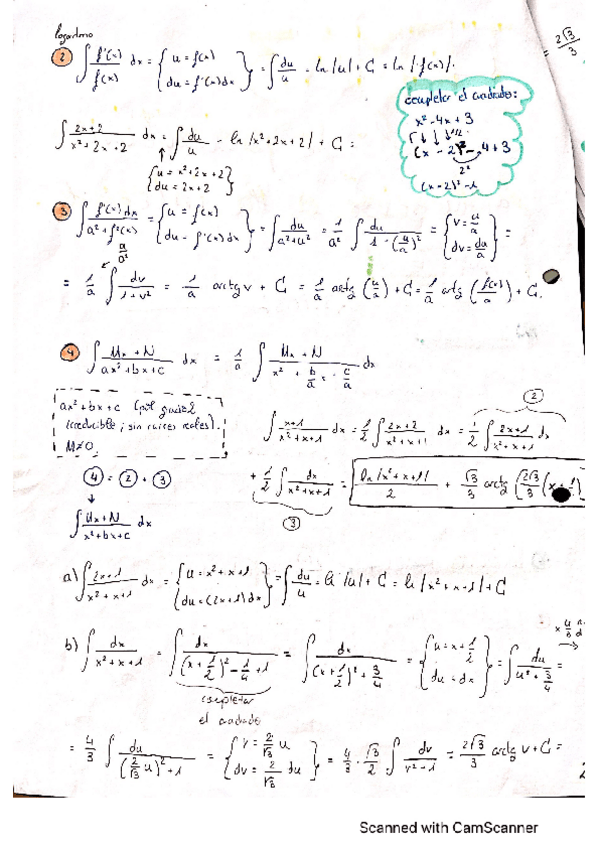 logaritmo
2 ∫ f'(x)/f(x) dx = { u = f(x) ; du = f'(x)dx } = ∫ du/u = ln|u| + C = ln|f(x)|.
= 2√3/3
completar el cuadrado:
x² - 4x + 3
(x - 2)² - 4 + 3
2²
(x - 2)² - 1
∫ (2x+2)/(x²+2x+2) dx = ∫ du/u = ln|x²+2x+2| + C =
{ u = x²+2x+2 ; du = 2x+2 }
3 ∫ f'(x)dx/(a²+f²(x)) = { u = f(x) ; du = f'(x)dx } = ∫ du/(a²+u²) = 1/a² ∫ du/(1-(u/a)²) = { v = u/a ; dv = du/a } =
a/a²
= 1/a ∫ dv/(1+v²) = 1/a arctg v + C = 1/a arctg (u/a) + C = 1/a arctg (f(x)/a) + C.
4 ∫ (Mx+N)/(ax²+bx+c) dx = 1/a ∫ (Mx+N)/(x² + b/a + c/a) dx
ax²+bx+c (pol grado 2
irreducible; sin raíces reales).
M≠0
2
∫ (x+1)/(x²+x+1) dx = 1/2 ∫ (2x+2)/(x²+x+1) dx = 1/2 ∫ (2x+1)/(x²+x+1) dx
4 = 2 + 3
+ 1/2 ∫ dx/(x²+x+1) = ln|x²+x+1|/2 + √3/3 arctg (2√3/3 (x+
3
∫ (Mx+N)/(x²+bx+c) dx
a) ∫ (2x+1)/(x²+x+1) dx = { u = x²+x+1 ; du = (2x+1)dx } = ∫ du/u = ln|u| + C = ln|x²+x+1| + C
b) ∫ dx/(x²+x+1) = ∫ dx/((x+1/2)² - 1/4 + 1) = ∫ dx/((x+1/2)² + 3/4) = { u = x+1/2 ; du = dx } = ∫ du/(u²+3/4) =
completar
el cuadrado
= 4/3 ∫ du/((2/√3 u)²+1) = { v = 2/√3 u ; dv = 2/√3 du } = 4/3 · √3/2 ∫ dv/(v²+1) = 2√3/3 arctg v + C =
Scanned with CamScanner